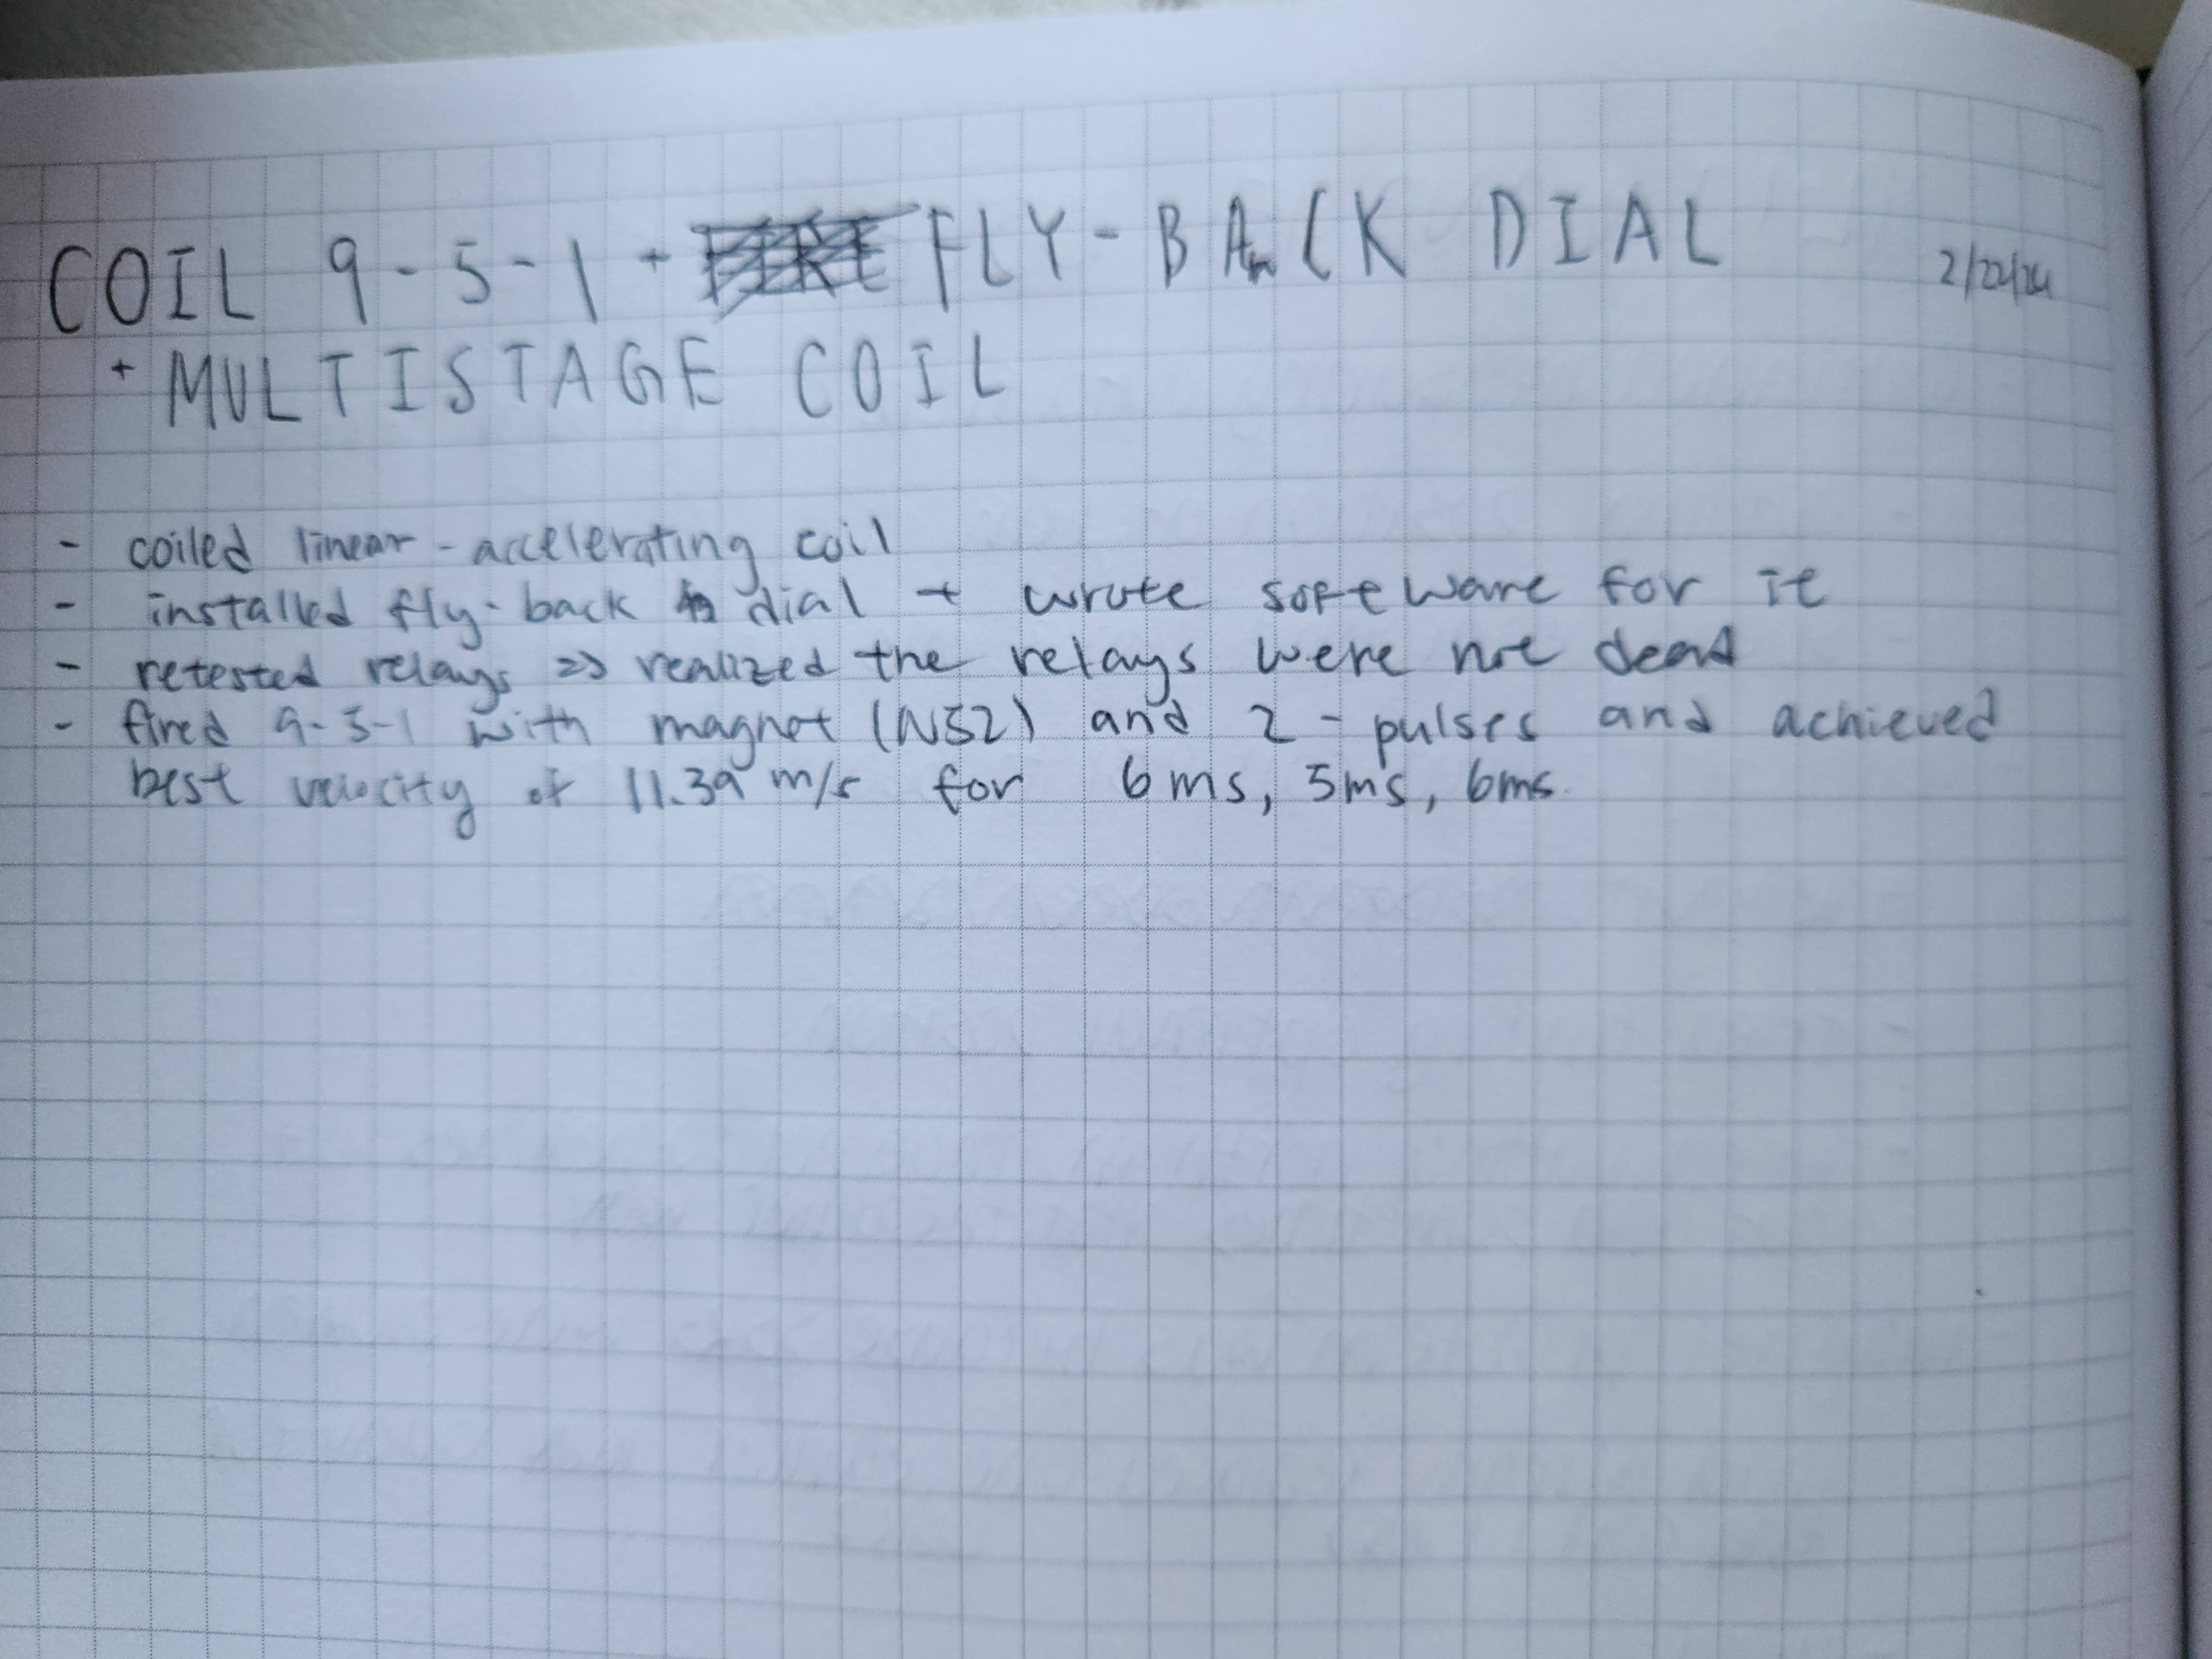 COIL 9-5-1 + FLY-BACK DIAL 2/22/24
+ MULTISTAGE COIL
- coiled linear-accelerating coil
- installed fly-back dial + wrote software for it
- retested relays => realized the relays were not dead
- fired 9-5-1 with magnet (N52) and 2-pulses and achieved
best velocity of 11.39 m/s for 6ms, 5ms, 6ms.